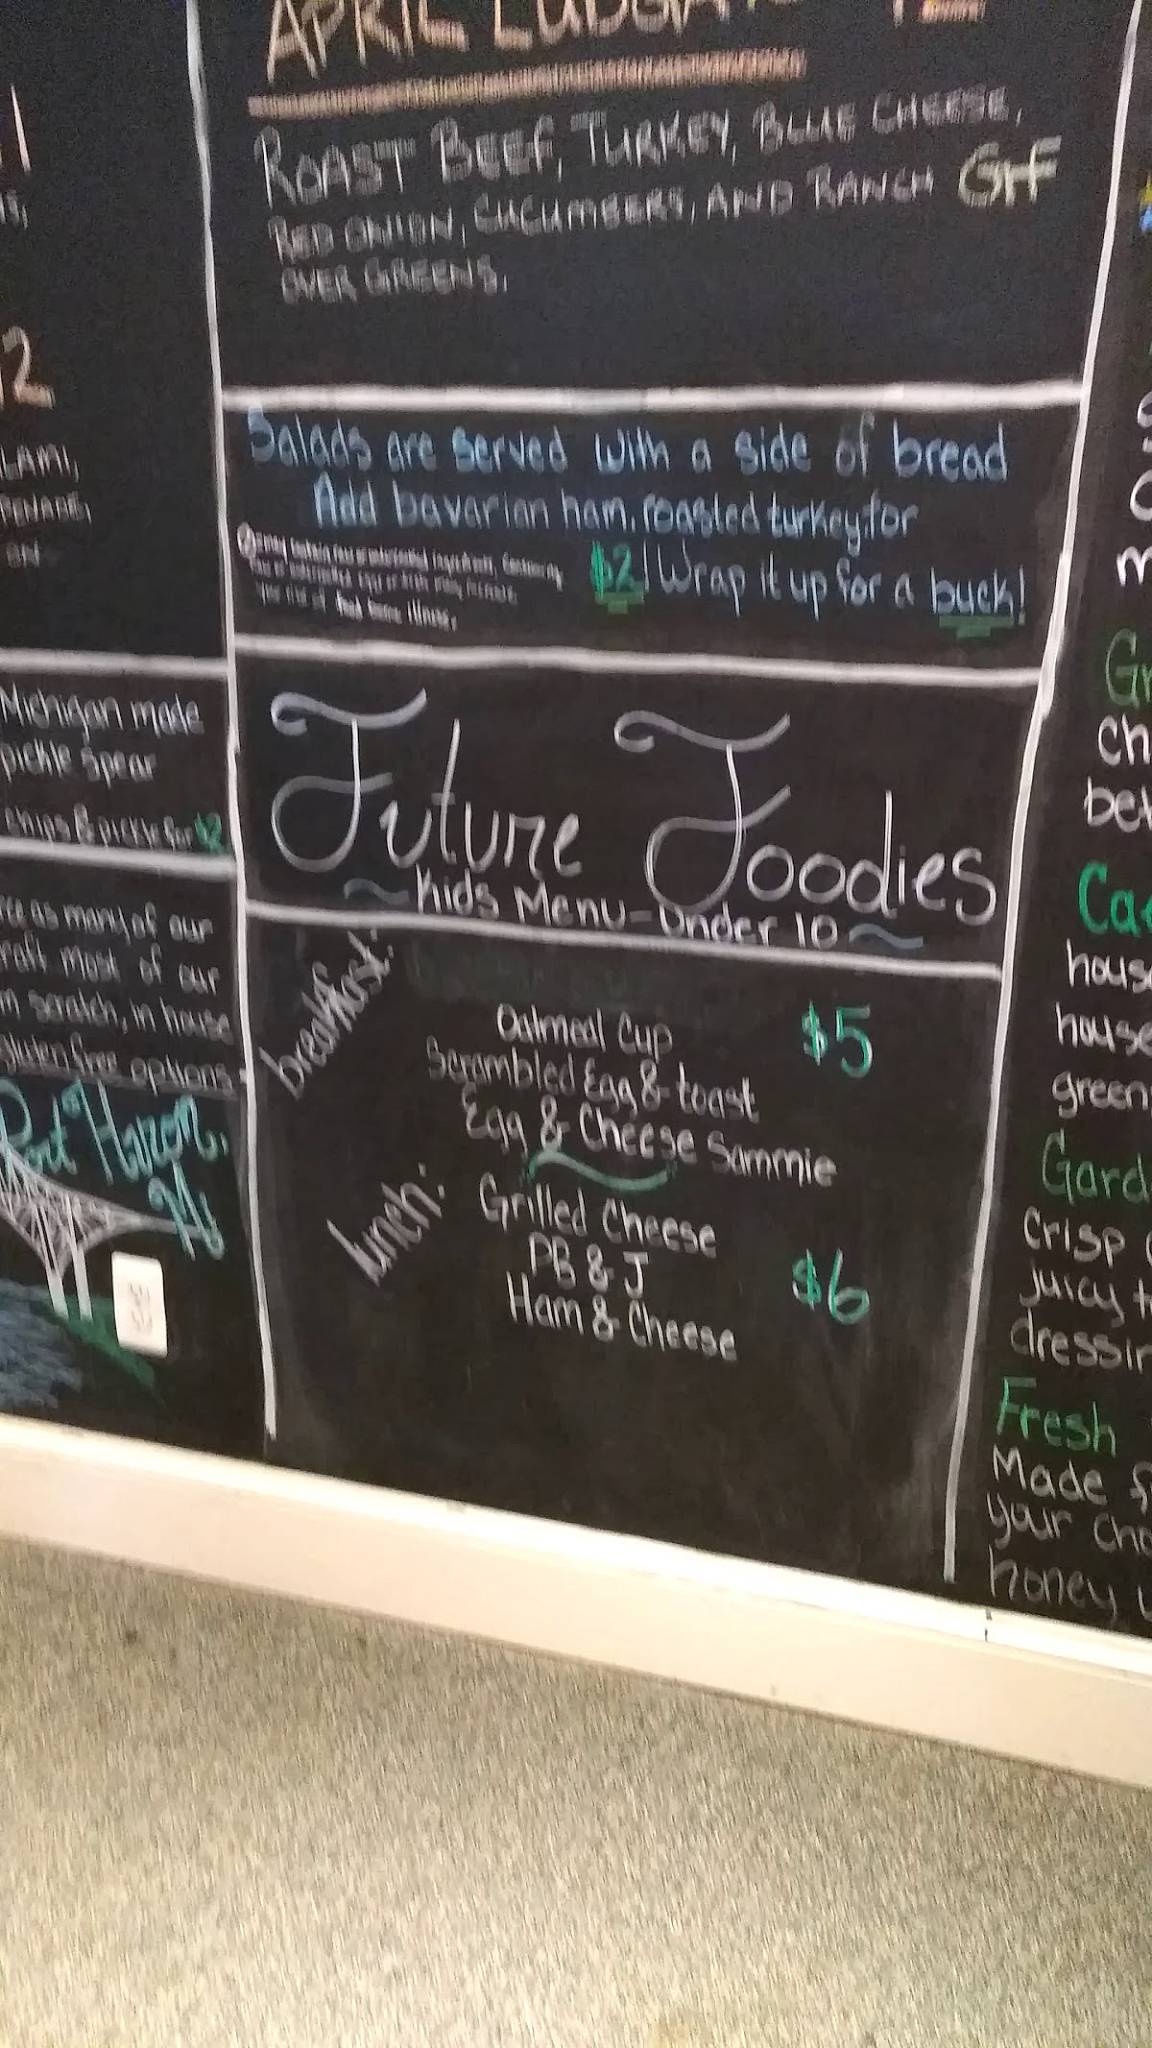 APRIL LUDGATE 12
ROAST BEEF, TURKEY, BLUE CHEESE,
RED ONION, CUCUMBERS, AND RANCH GFF
OVER GREENS.
Salads are served with a side of bread
Add bavarian ham, roasted turkey, for
$2! Wrap it up for a buck!
your risk of food borne illness.
Future Foodies
Kids Menu- Under 10
breakfast:
Oatmeal Cup $5
Scrambled Egg & toast
Egg & Cheese Sammie
lunch:
Grilled Cheese
PB & J $6
Ham & Cheese
1
12
LAMI,
ON
Michigan made
pickle spear
chips & pickle for $2
as many of our
most of our
scratch, in house
gluten free options.
Port Huron,
MI
Gr
ch
Ca
house
house
green
Gard
Crisp
juicy
dressin
Fresh
Made f
your cho
honey